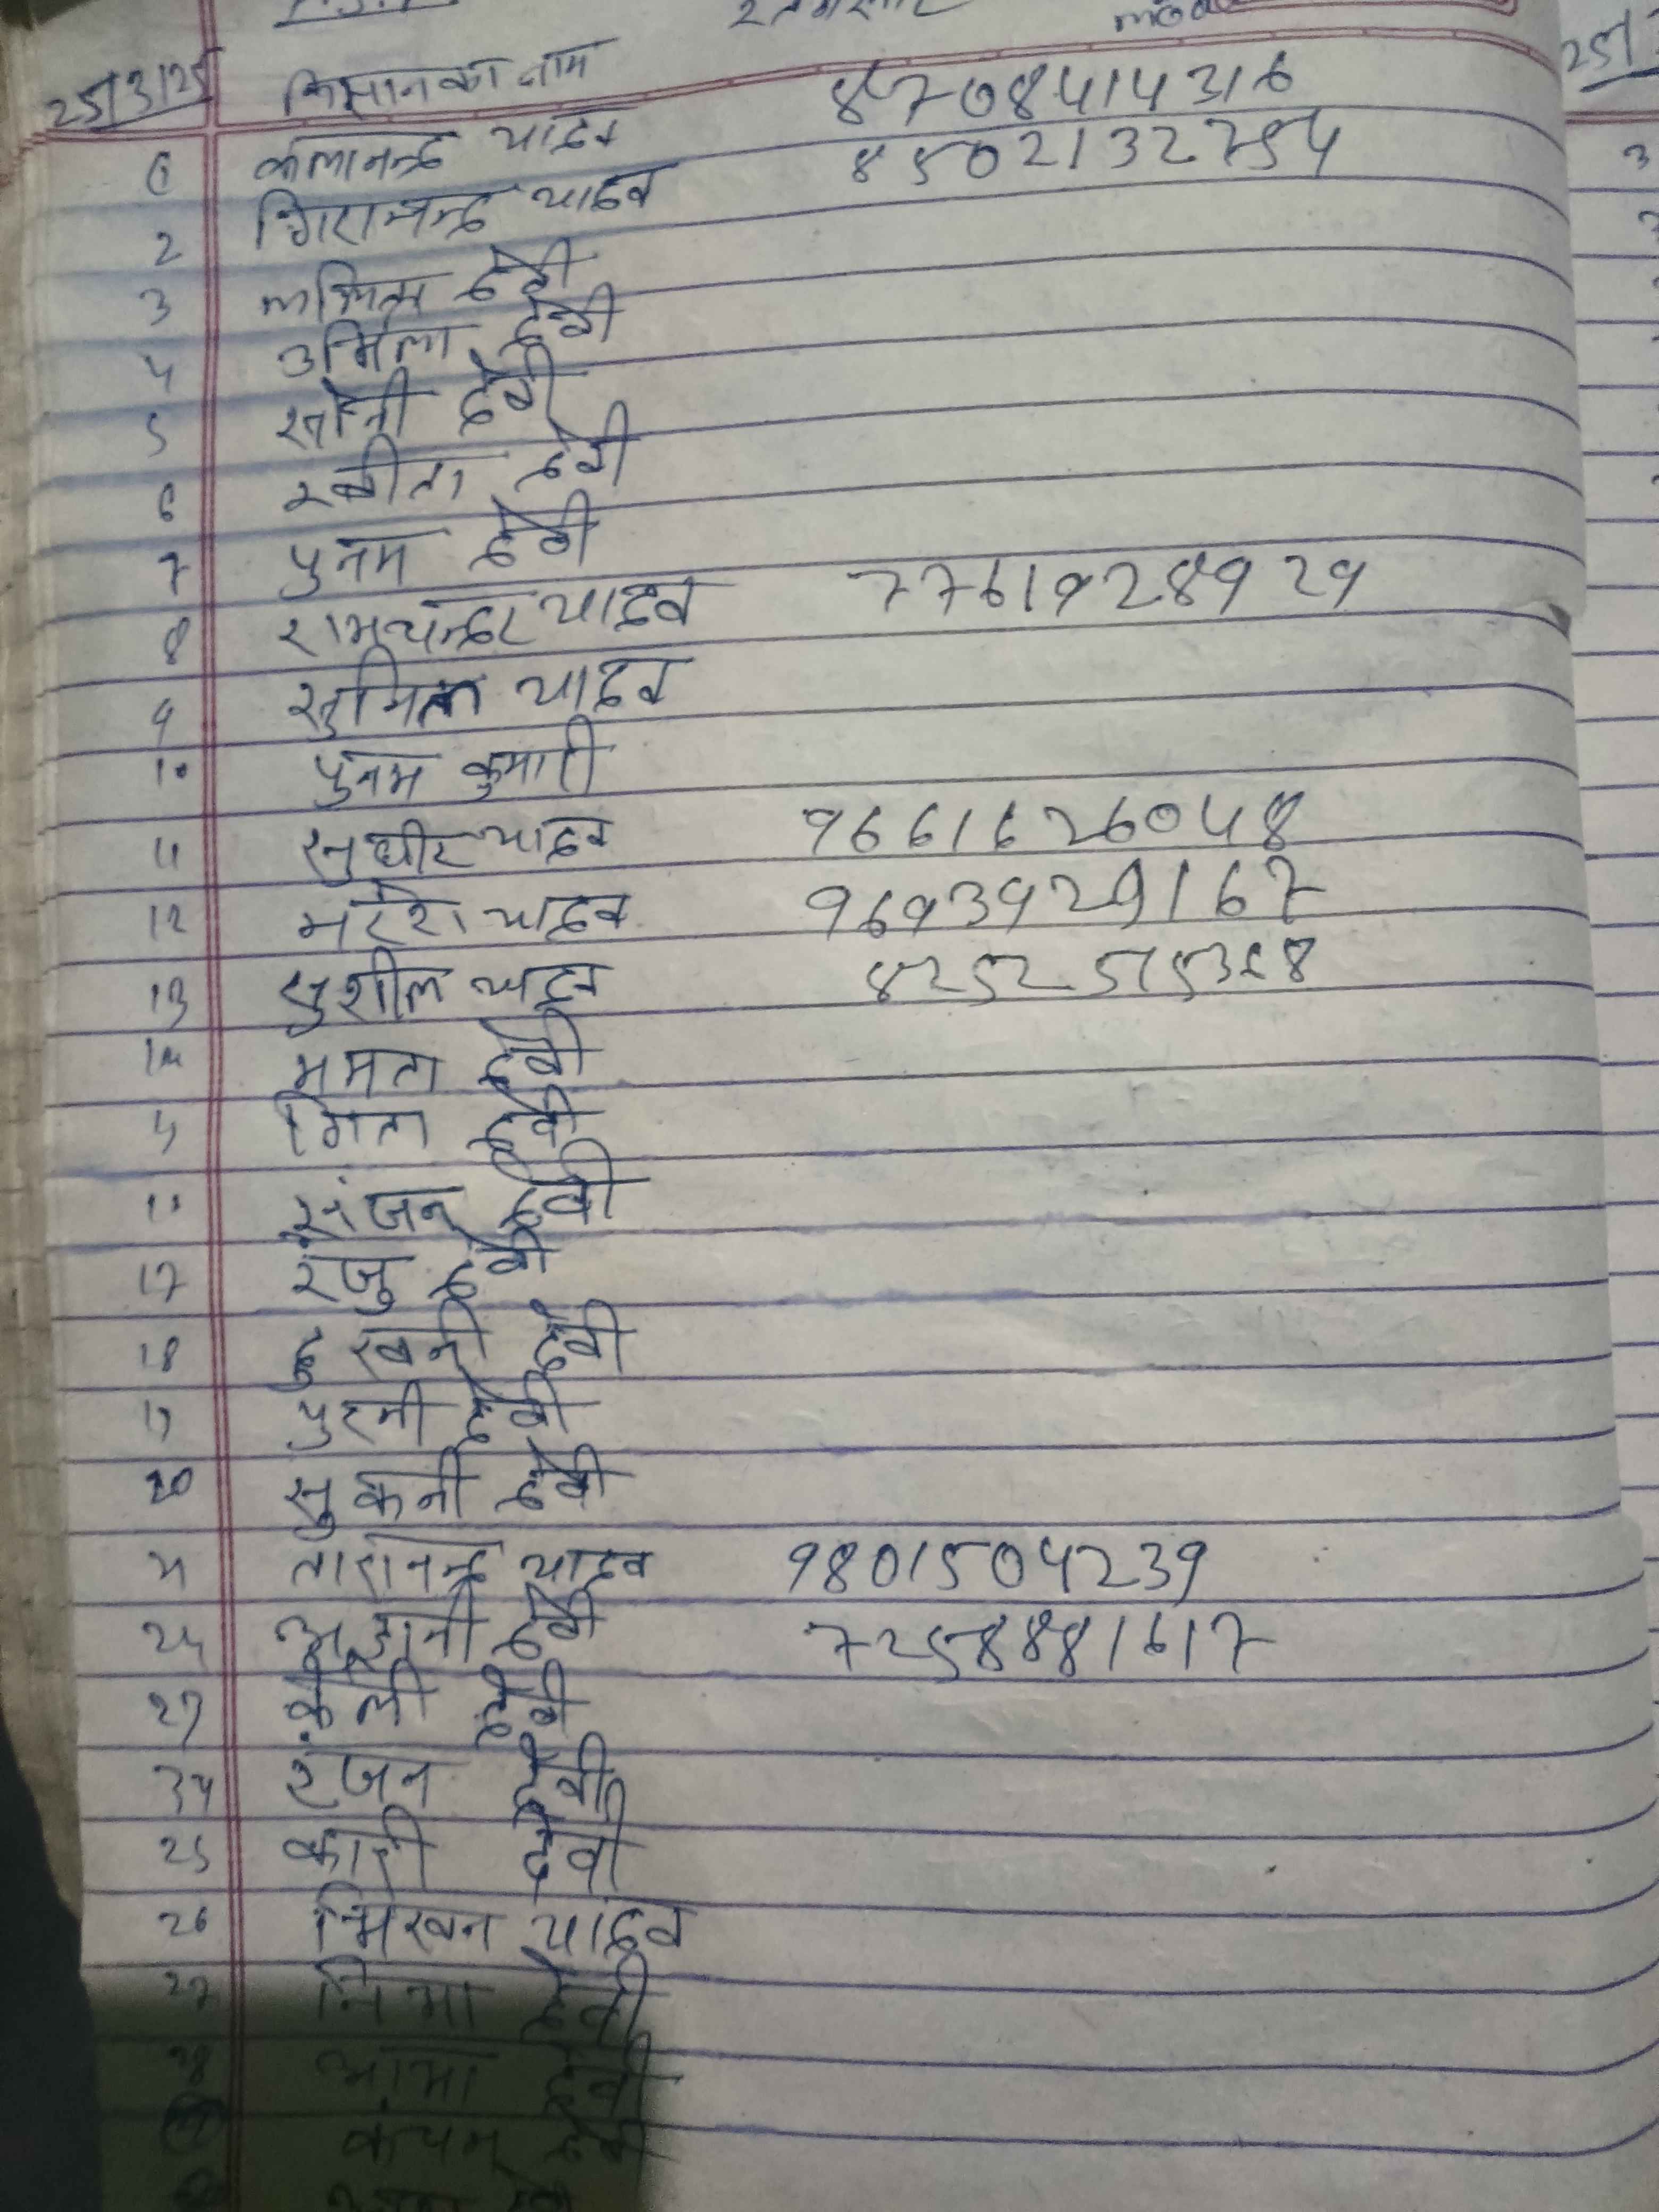 25/3/25 किसान का नाम
1 कलानन्द यादव 8708414316
2 गिरानन्द यादव 8502132754
3 ललिता देवी
4 उर्मिला देवी
5 सोनी देवी
6 रबीता देवी
7 पुनम देवी
8 रामचन्दर यादव 7761928929
9 सुमित्रा यादव
10 पुनम कुमारी
11 सुधीर यादव 9661626048
12 नरेश यादव 9693929167
13 सुशील यादव
14 ममता देवी
गिता देवी
संजन देवी
17 रंजु देवी
18 दुखनी देवी
19 पुरनी देवी
20 सुकनी देवी
तारानन्द यादव 9801504239
देवी 7258881617
केली देवी
रंजन देवी
25 कारी देवी
26 भिखन यादव
27 निभा देवी
28 आभा देवी
कंचन देवी